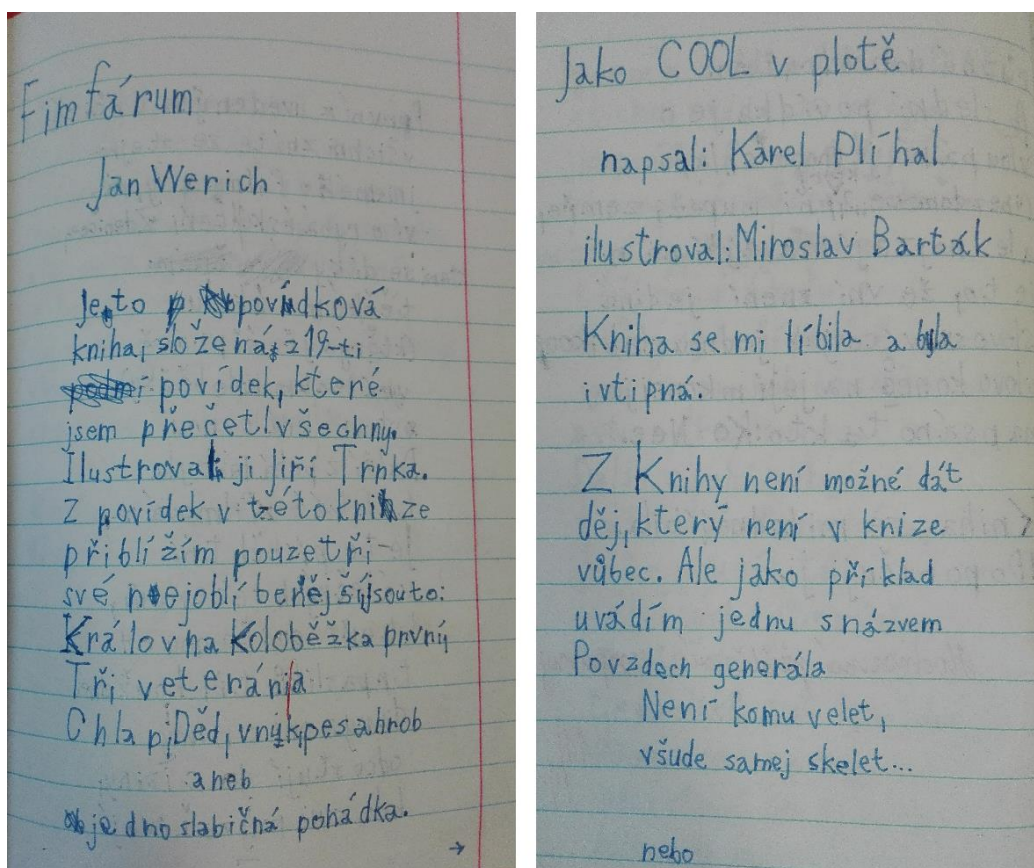 Fimfárum
Jan Werich
Je to povídková
kniha, složená z 19-ti
povídek, které
jsem přečetl všechny.
Ilustroval ji Jiří Trnka.
Z povídek v této knize
přiblížím pouze tři
své nejoblíbenější, jsou to:
Královna Koloběžka první
Tři veteráni a
Chlap, Děd, vnuk, pes a hrob
aneb
jednoslabičná pohádka.
→
Jako COOL v plotě
napsal: Karel Plíhal
ilustroval: Miroslav Barták
Kniha se mi líbila a byla
i vtipná.
Z Knihy není možné dát
děj, který není v knize
vůbec. Ale jako příklad
uvádím jednu s názvem
Povzdech generála
Není komu velet,
všude samej skelet...
nebo